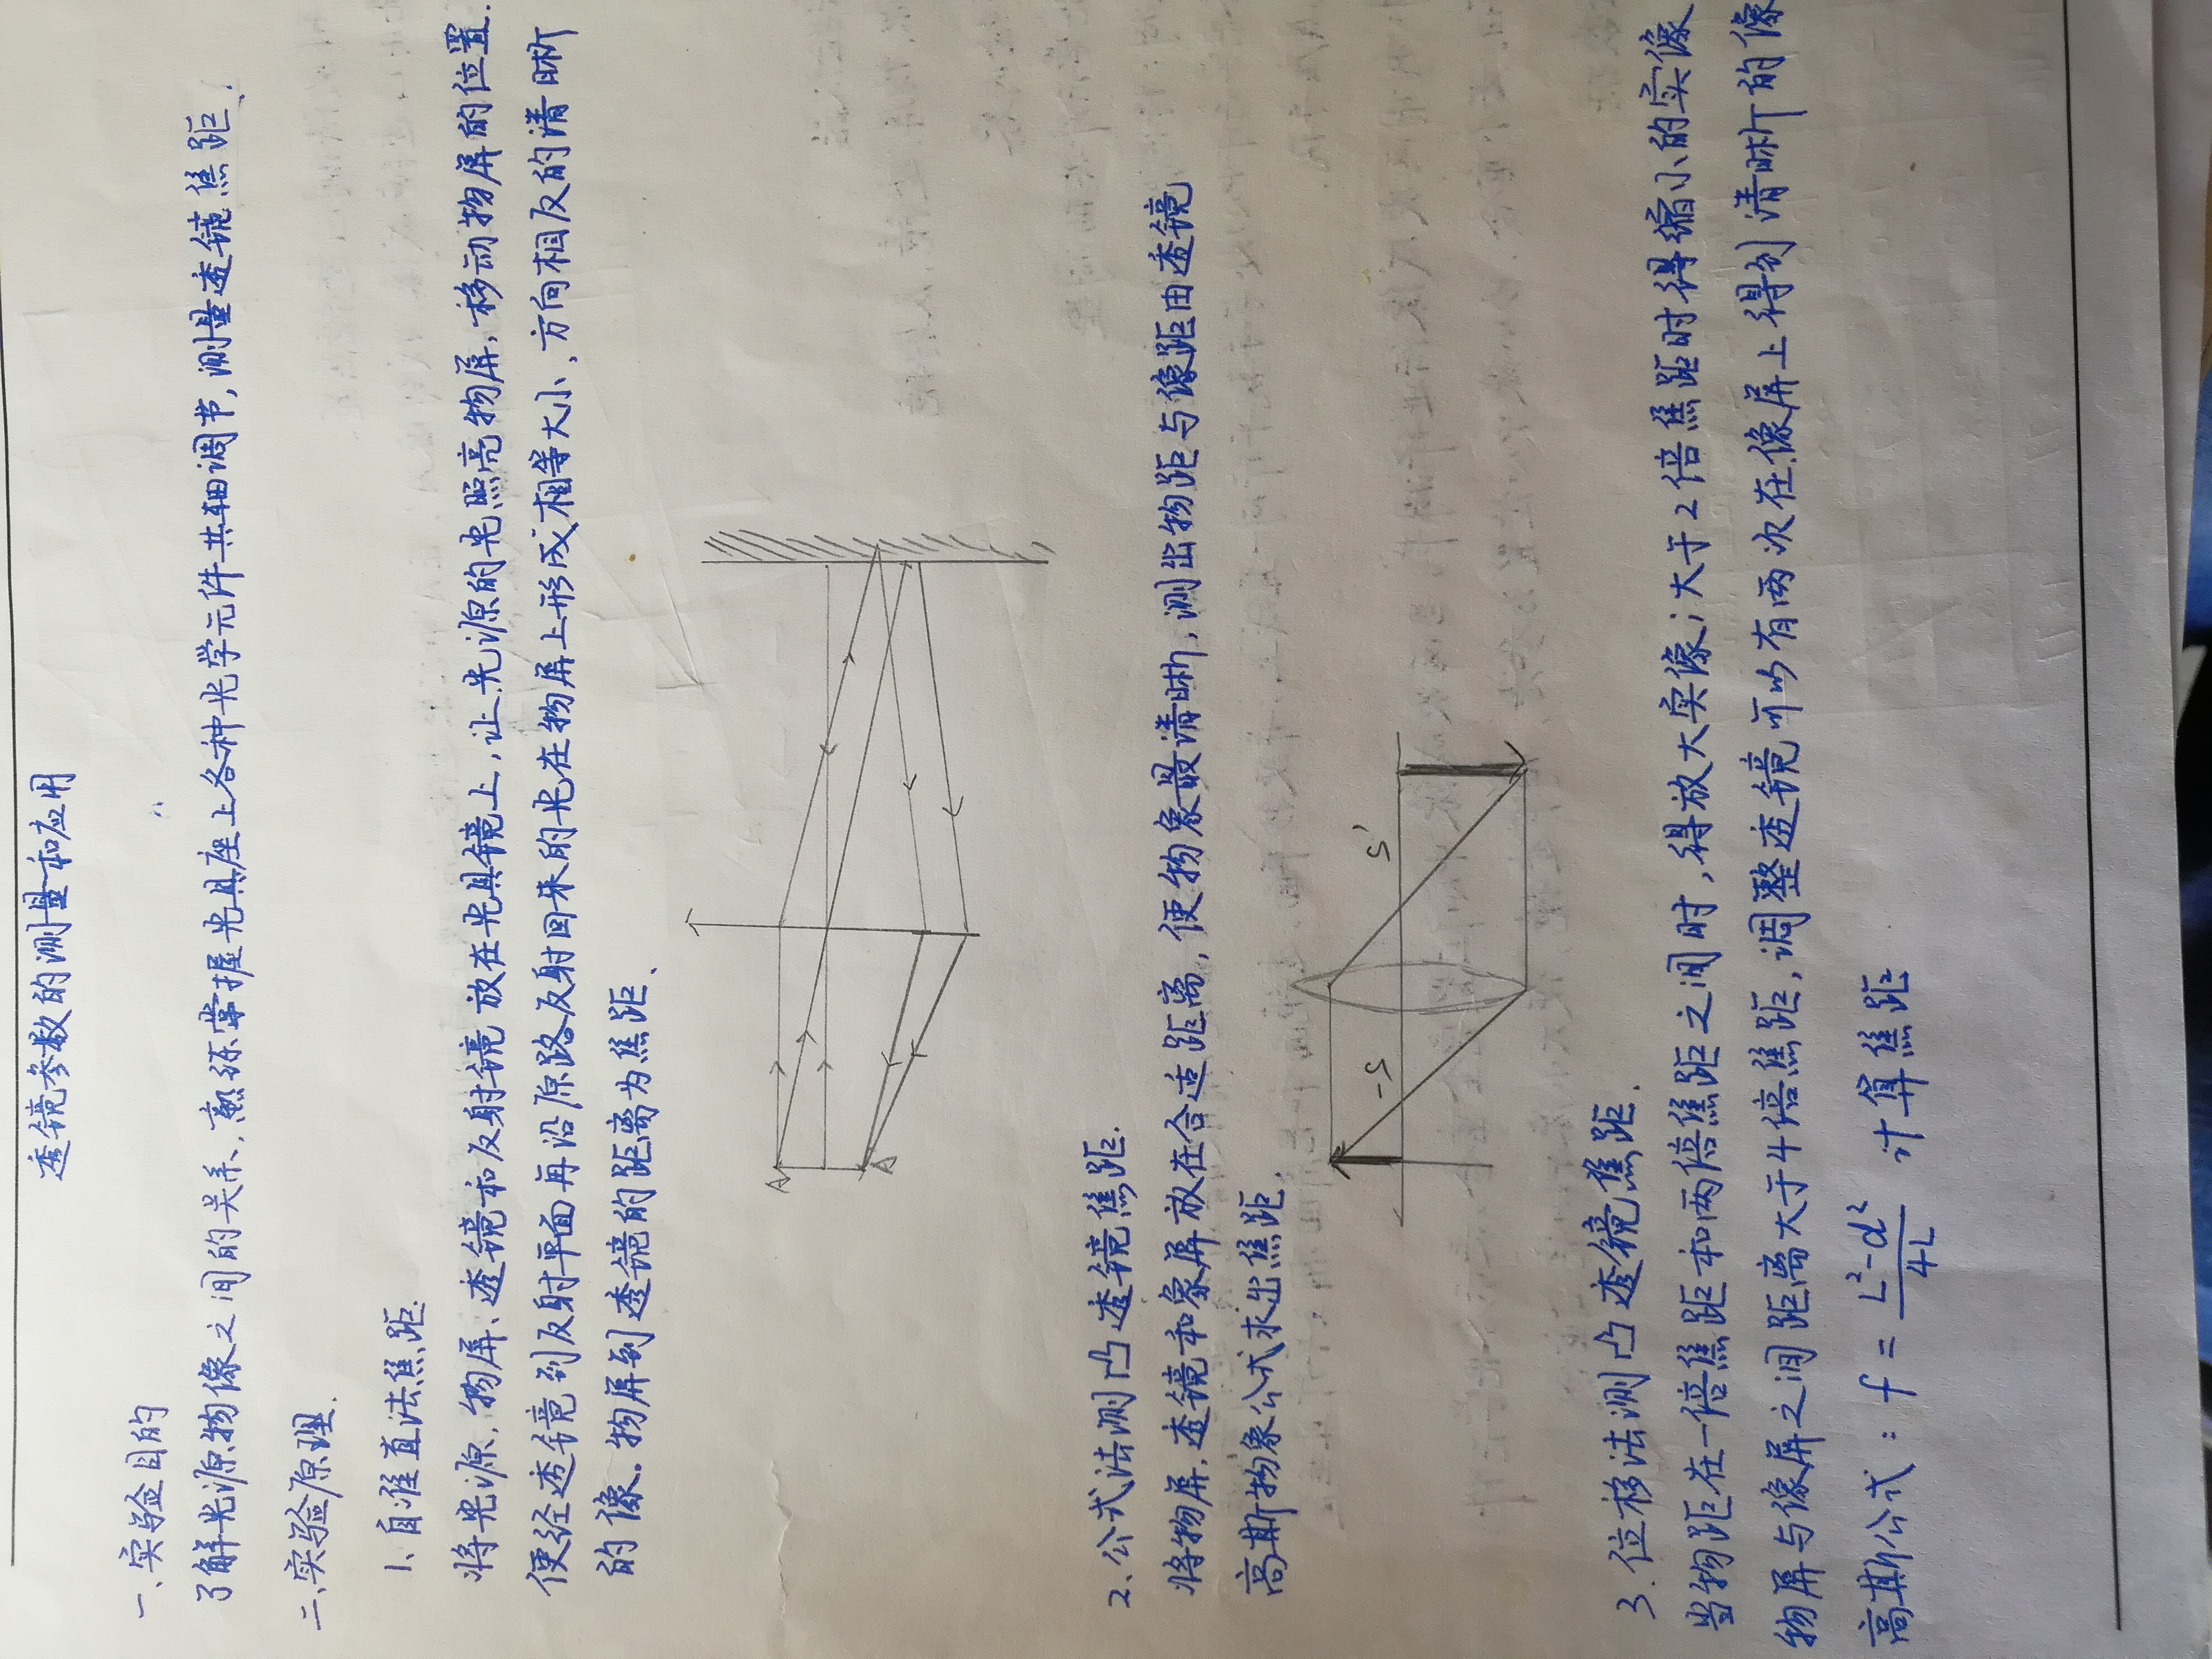 透镜参数的测量和应用
一、实验目的
了解光源物像之间的关系，熟练掌握光具座上各种光学元件共轴调节，测量透镜焦距、
二、实验原理.
1、自准直法焦距.
将光源，物屏、透镜和反射镜放在光具镜上，让光源的光照亮物屏，移动物屏的位置.
使经透镜到反射平面再沿原路反射回来的光在物屏上形成相等大小、方向相反的清晰
的像。物屏到透镜的距离为焦距、
A
A
2、公式法测凸透镜焦距.
将物屏，透镜和象屏放在合适距离，使物象最清晰，测出物距与像距由透镜
高斯物象公式求出焦距.
-S S'
3.位移法测凸透镜焦距.
当物距在一倍焦距和两倍焦距之间时，得放大实像；大于2倍焦距时得缩小的实像
物屏与像屏之间距离大于4倍焦距，调整透镜可以有两次在像屏上得到清晰的像
高斯公式：f = (L²-d²)/4L 计算焦距